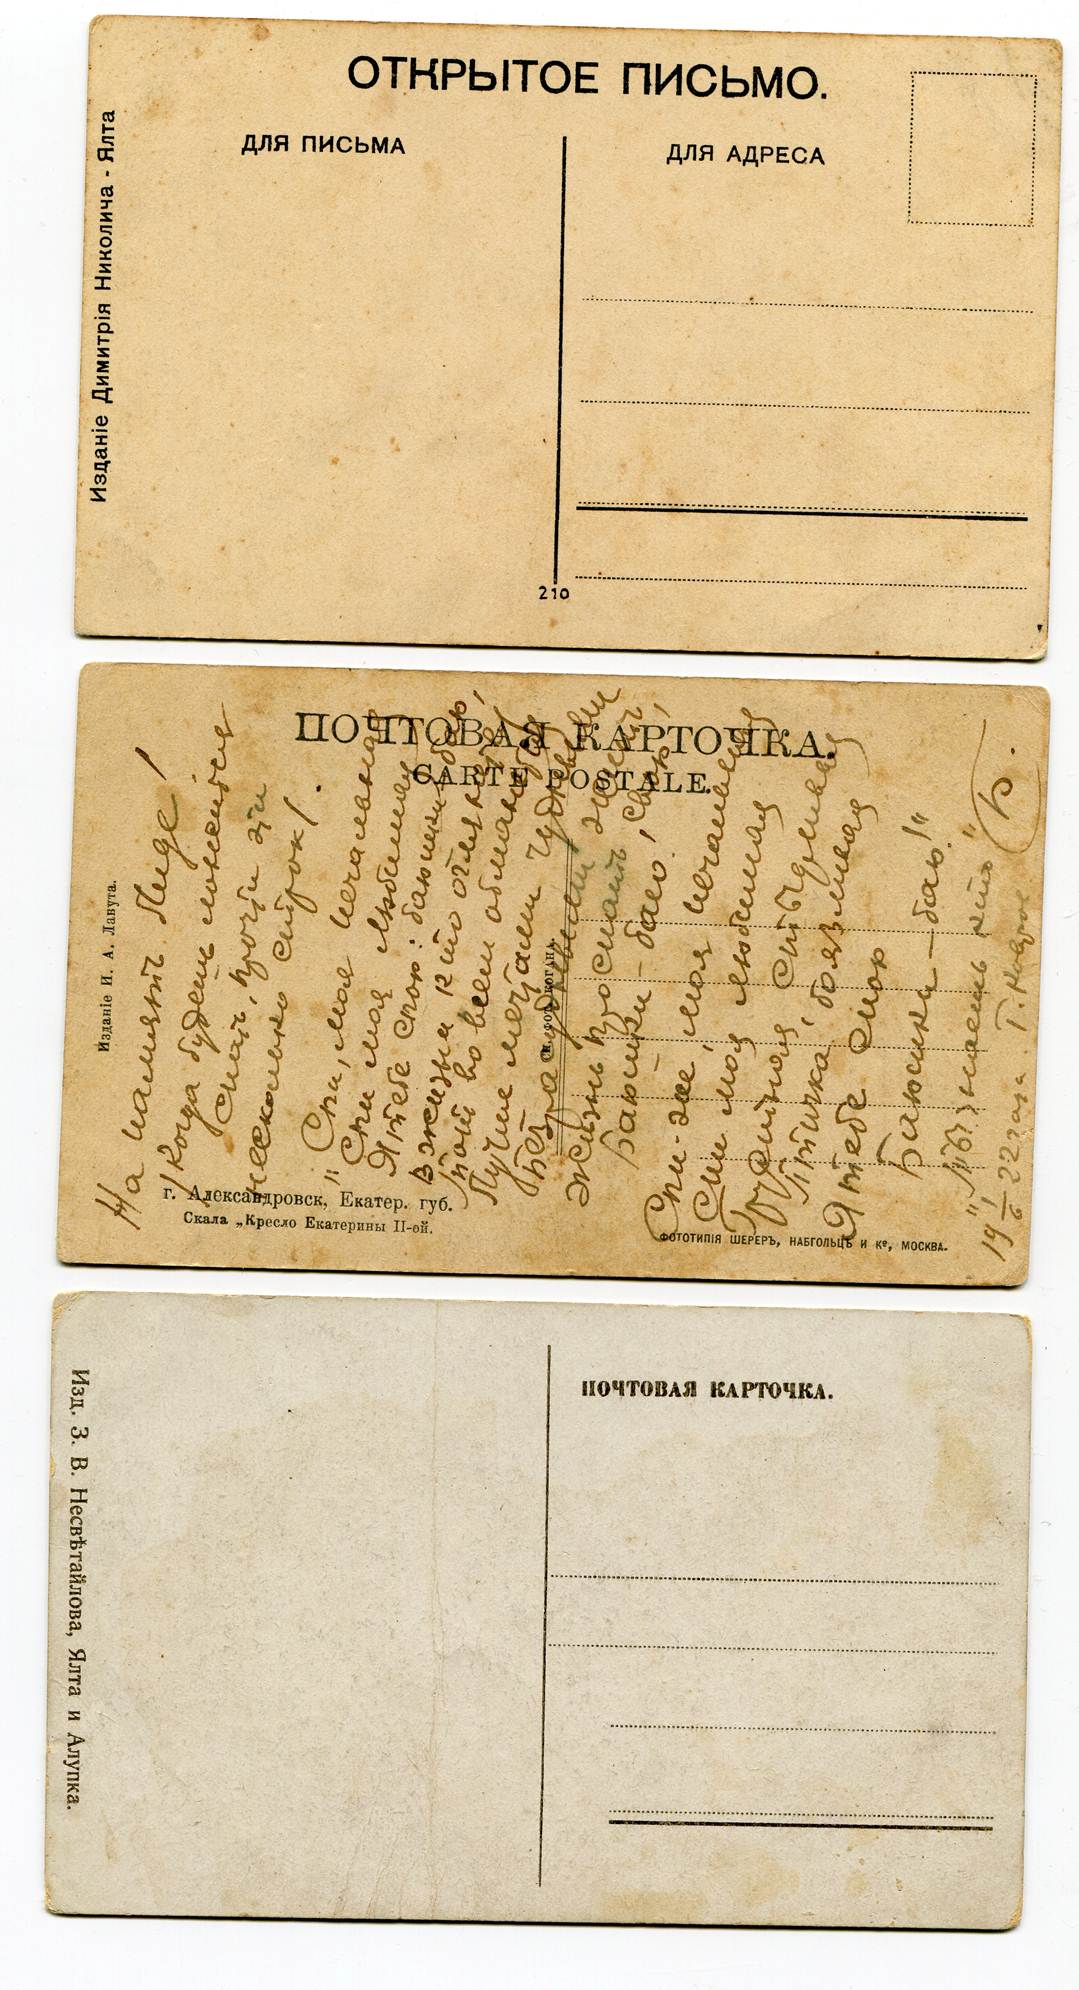 ОТКРЫТОЕ ПИСЬМО.
ДЛЯ ПИСЬМА
ДЛЯ АДРЕСА
Изданіе Димитрія Николича - Ялта
210
ПОЧТОВАЯ КАРТОЧКА.
CARTE POSTALE.
Изданіе И. А. Лавута.
г. Александровск, Екатер. губ.
Скала „Кресло Екатерины II-ой.
ФОТОТИПІЯ ШЕРЕРЪ, НАБГОЛЬЦЪ И Кº, МОСКВА.
На память Лиде!
Когда будешь ложиться
спать, прочти эти
несколько строк!
„Спи, моя печальная
Спи моя любимая
Я тебе спою: баюшки-баю,
В жизни кто оглянется
Тот во всем обманется
Лучше мечтами чудными
жизнь проспать свою,
Баюшки-баю!
Спи-же, моя печальная
Спи моя любимая
Грустная,
Птичка боязливая
Я тебе спою
Баюшки-баю!"
„Ты знаешь кто"
19 1/6 22 года.
ПОЧТОВАЯ КАРТОЧКА.
Изд. З. В. Несвѣтайлова, Ялта и Алупка.